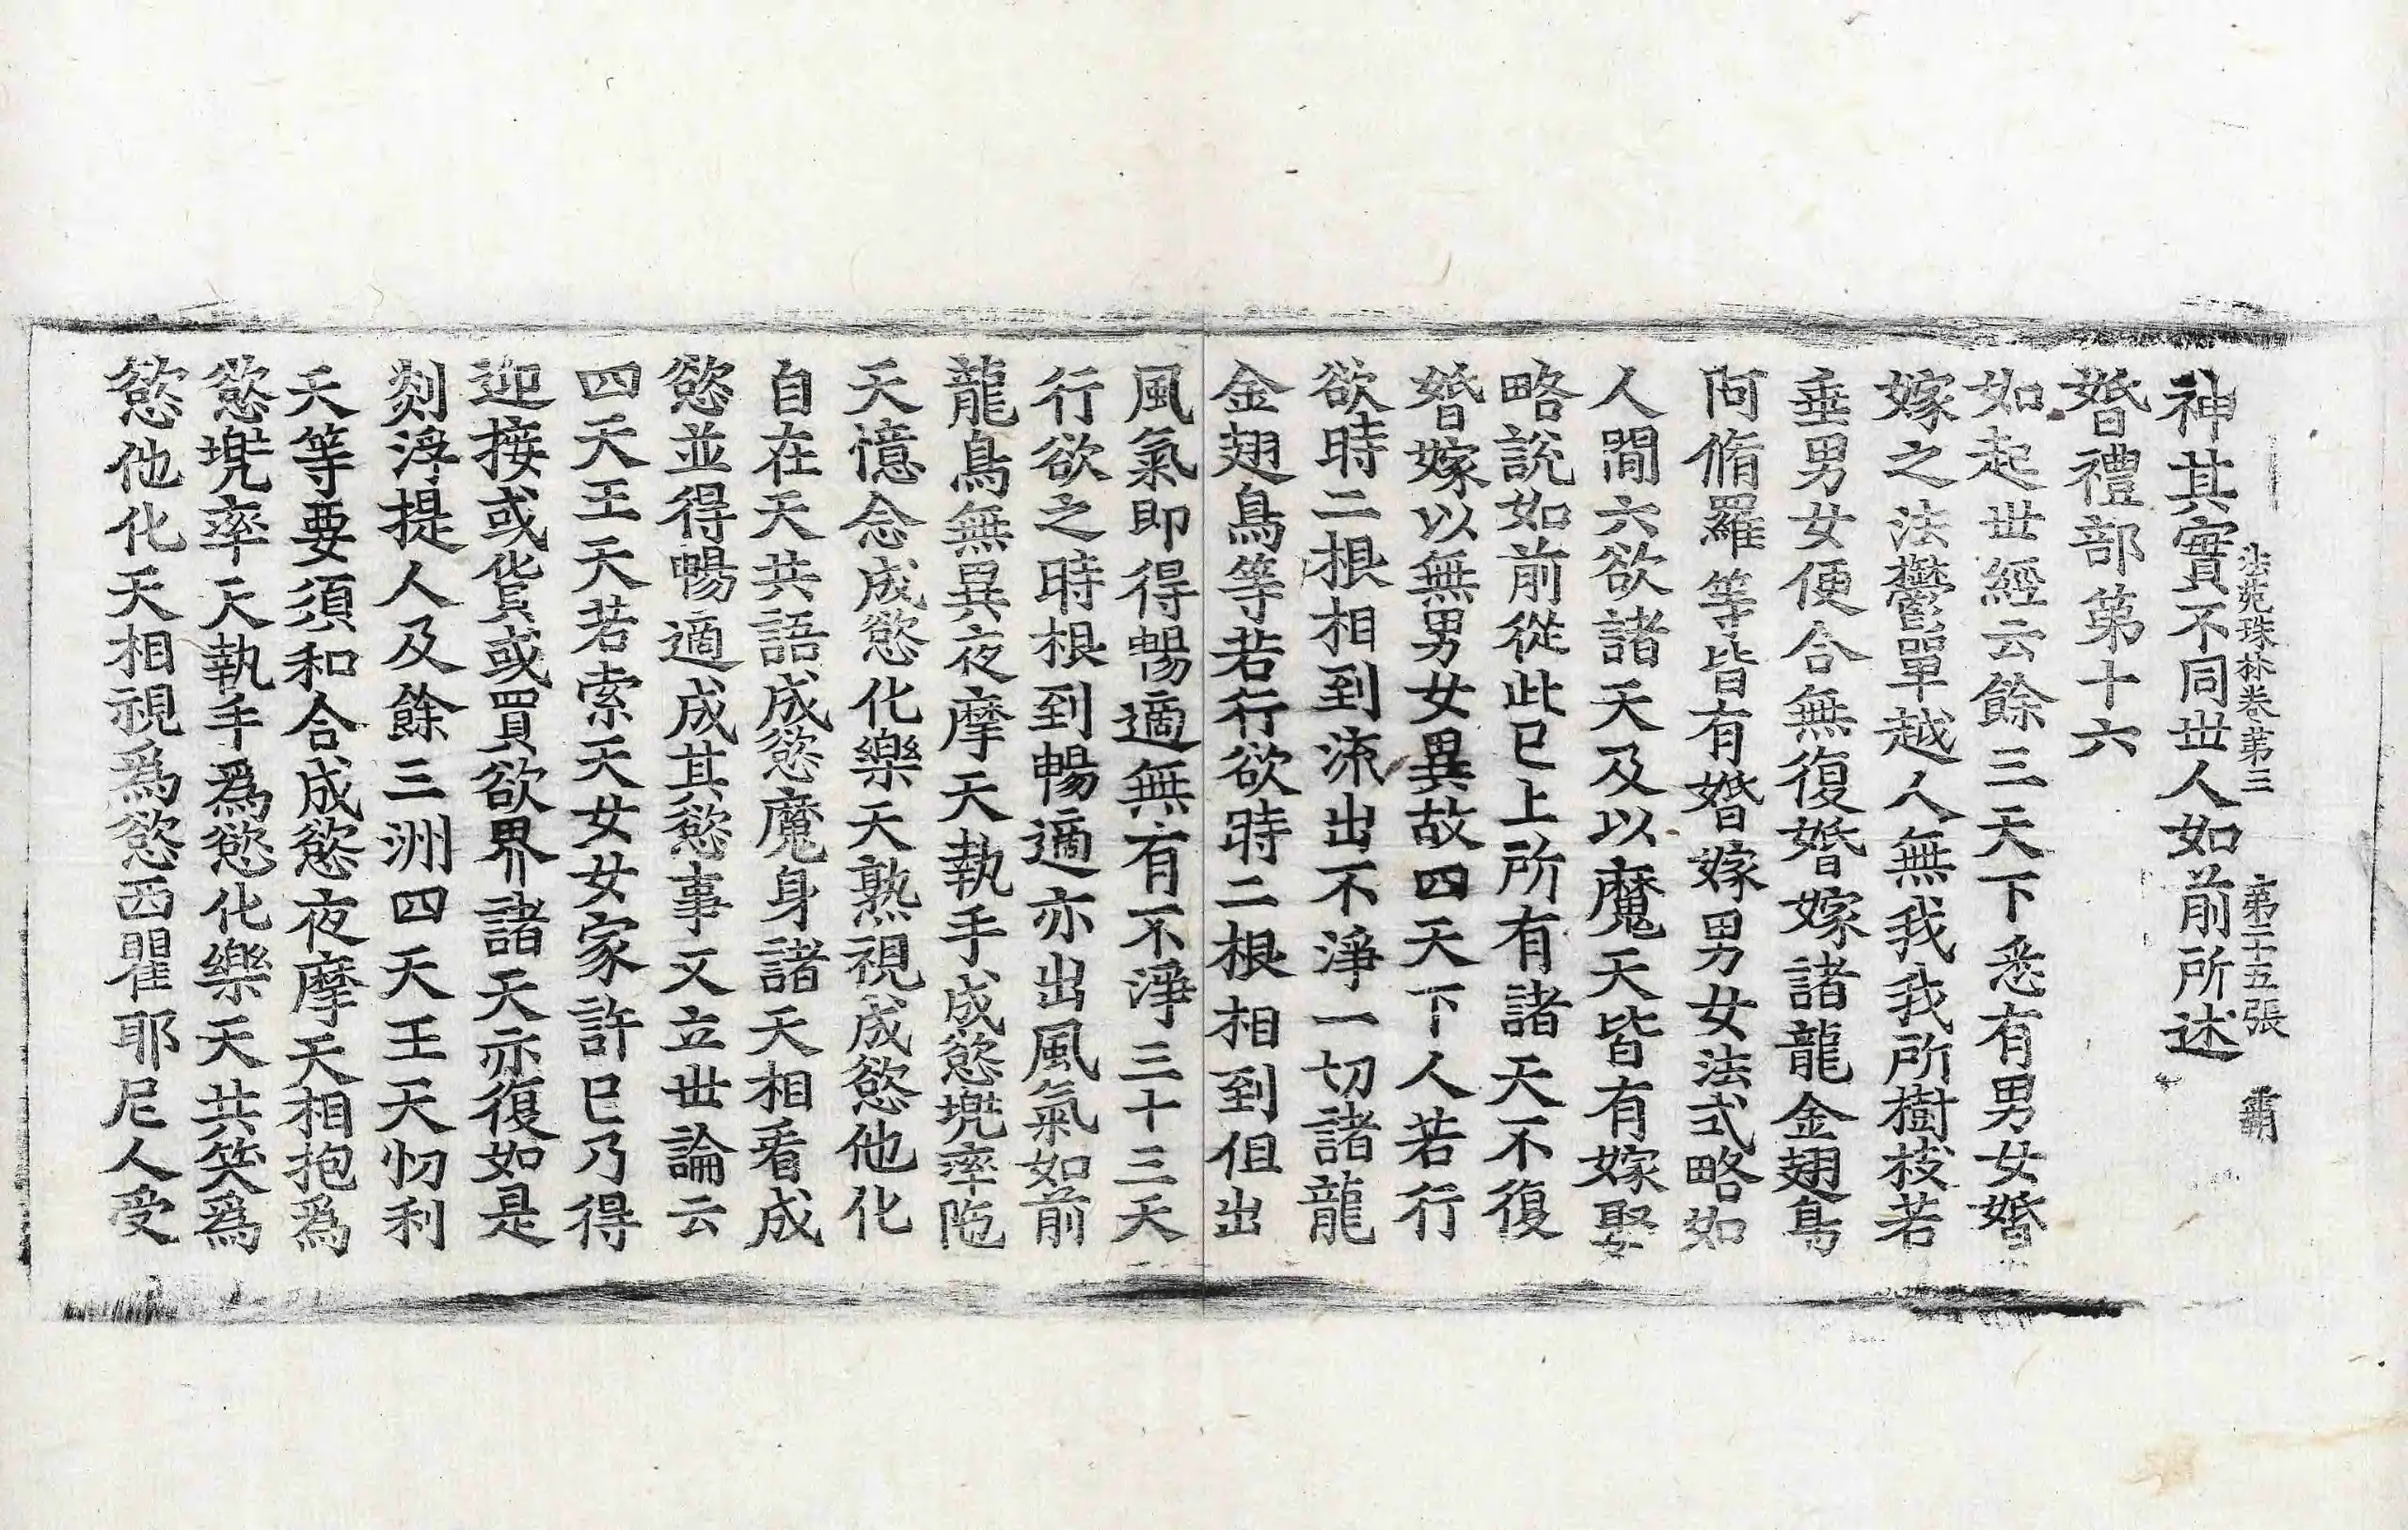 法苑珠林卷第三 第二十五張 霸
神其實不同世人如前所述
婚禮部第十六
如起世經云餘三天下悉有男女婚
嫁之法鬱單越人無我我所樹枝若
垂男女便合無復婚嫁諸龍金翅鳥
阿脩羅等皆有婚嫁男女法式略如
人間六欲諸天及以魔天皆有嫁娶
略說如前從此已上所有諸天不復
婚嫁以無男女異故四天下人若行
欲時二根相到流出不淨一切諸龍
金翅鳥等若行欲時二根相到但出
風氣即得暢適無有不淨三十三天
行欲之時根到暢適亦出風氣如前
龍鳥無異夜摩天執手成慾兜率陁
天憶念成慾化樂天熟視成慾他化
自在天共語成慾魔身諸天相看成
慾並得暢適成其慾事又立世論云
四天王天若索天女女家許已乃得
迎接或貨或買欲界諸天亦復如是
剡浮提人及餘三洲四天王天忉利
天等要須和合成慾夜摩天相抱爲
慾兜率天執手爲慾化樂天共笑爲
慾他化天相視爲慾西瞿耶尼人受